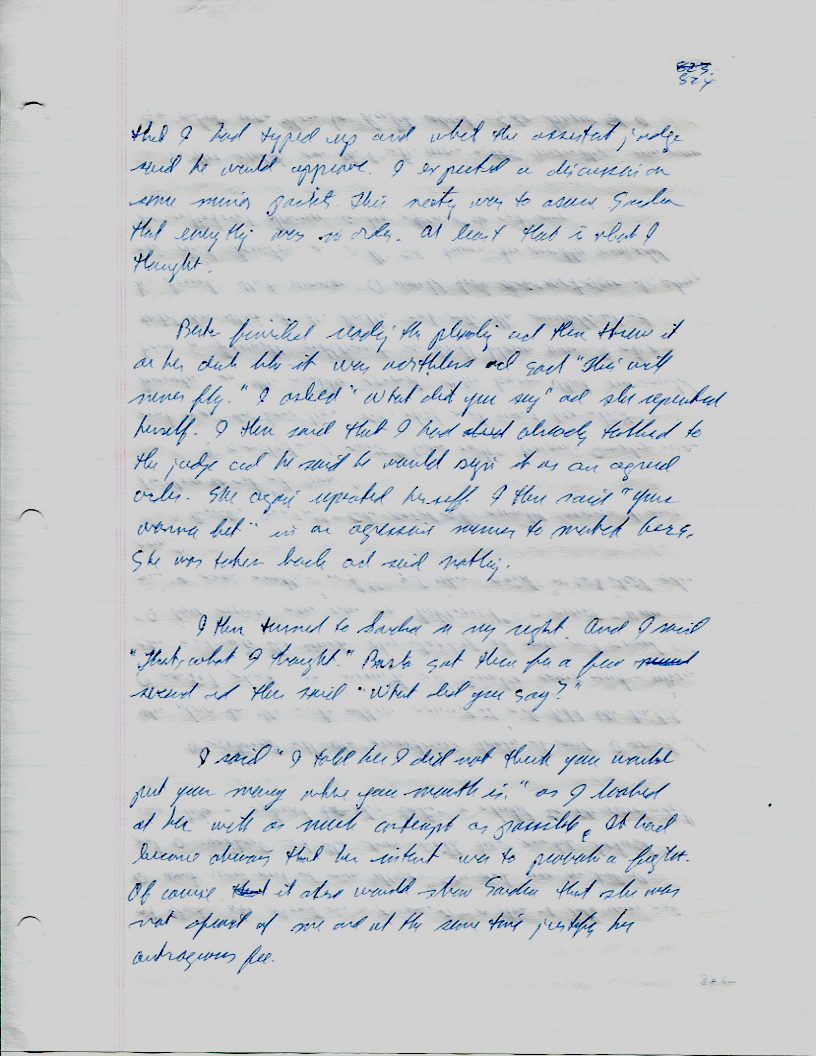 823.
824
that I had typed up and what the assistant judge
said he would approve. I expected a discussion on
some minor points. This meeting was to assure Sandra
that everything was in order. At least that is what I
thought.
finished reading the pleading and then threw it
on her desk like it was worthless and said "This will
never fly." I asked "What did you say" and she repeated
herself. I then said that I had already talked to
the judge and he said he would sign it as an agreed
order. She again repeated herself. I then said "You
wanna bet" in an agressive manner to match hers.
She was taken back and said nothing.
I then turned to Sandra on my right. And I said
"Thats what I thought." sat there for a few
second and then said "What did you say?"
I said "I told her I did not think you would
put your money where your mouth is." as I looked
at her with as much contempt as possible. It had
become obvious that her intent was to provoke a fight.
Of course it also would show Sandra that she was
not afraid of me and at the same time justify her
outragious fee.